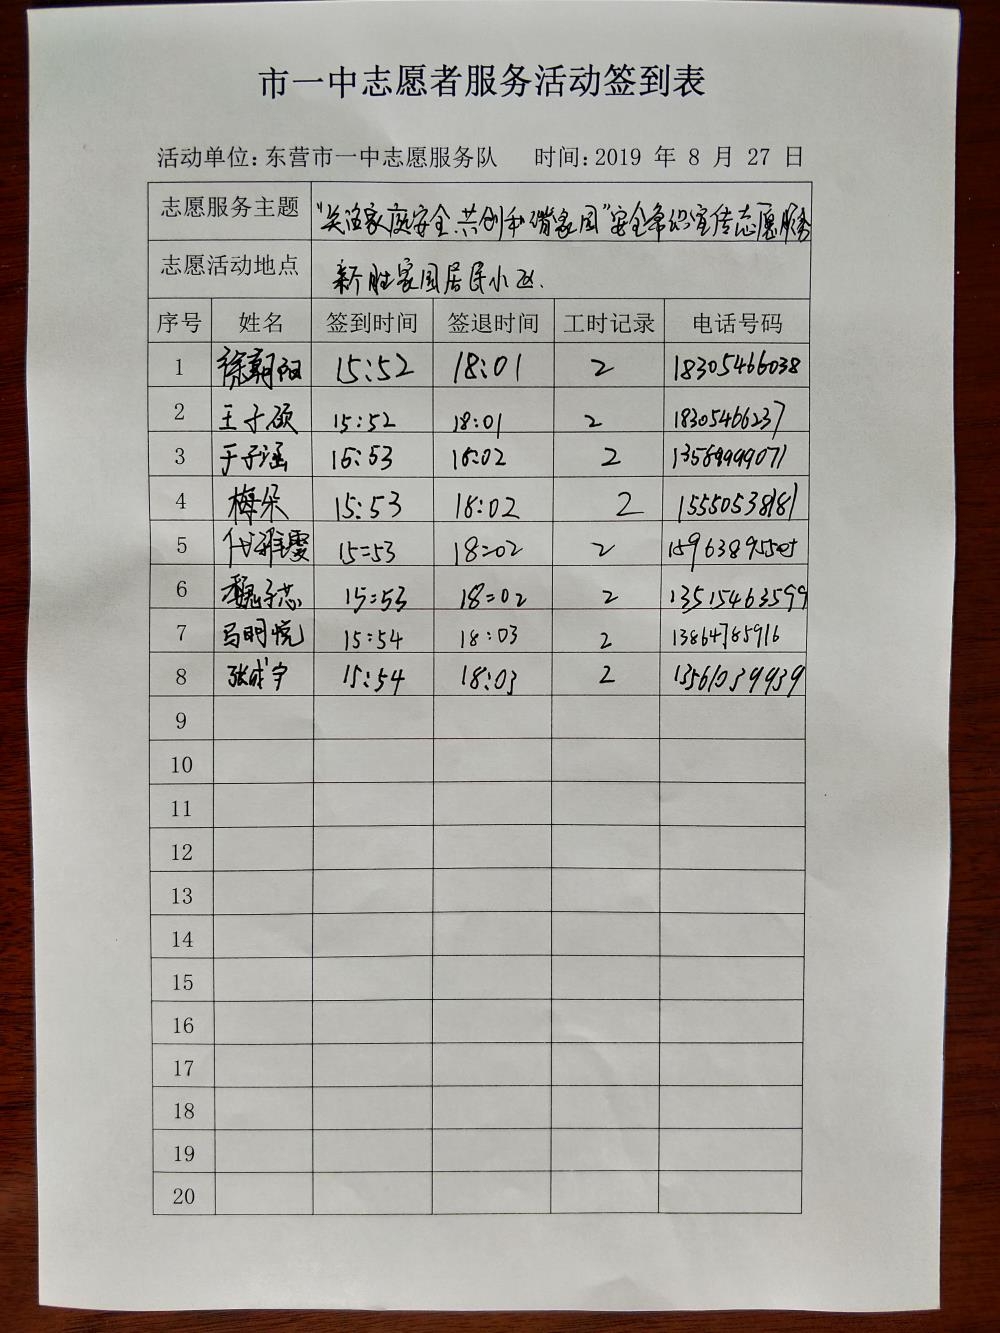 市一中志愿者服务活动签到表
活动单位：东营市一中志愿服务队 时间：2019 年 8 月 27 日
志愿服务主题 “关注家庭安全 共创和谐家园”安全常识宣传志愿服务
志愿活动地点 新胜家园居民小区.
序号 姓名 签到时间 签退时间 工时记录 电话号码
1 徐朝阳 15:52 18:01 2 18305466038
2 王子硕 15:52 18:01 2 18305466237
3 于子涵 15:53 18:02 2 13589999071
4 梅朵 15:53 18:02 2 15550538181
5 15:53 18:02 2
6 魏子芯 15:53 18:02 2 13515463599
7 马明悦 15:54 18:03 2 13864785916
8 张成宇 15:54 18:03 2 13561039939
9
10
11
12
13
14
15
16
17
18
19
20